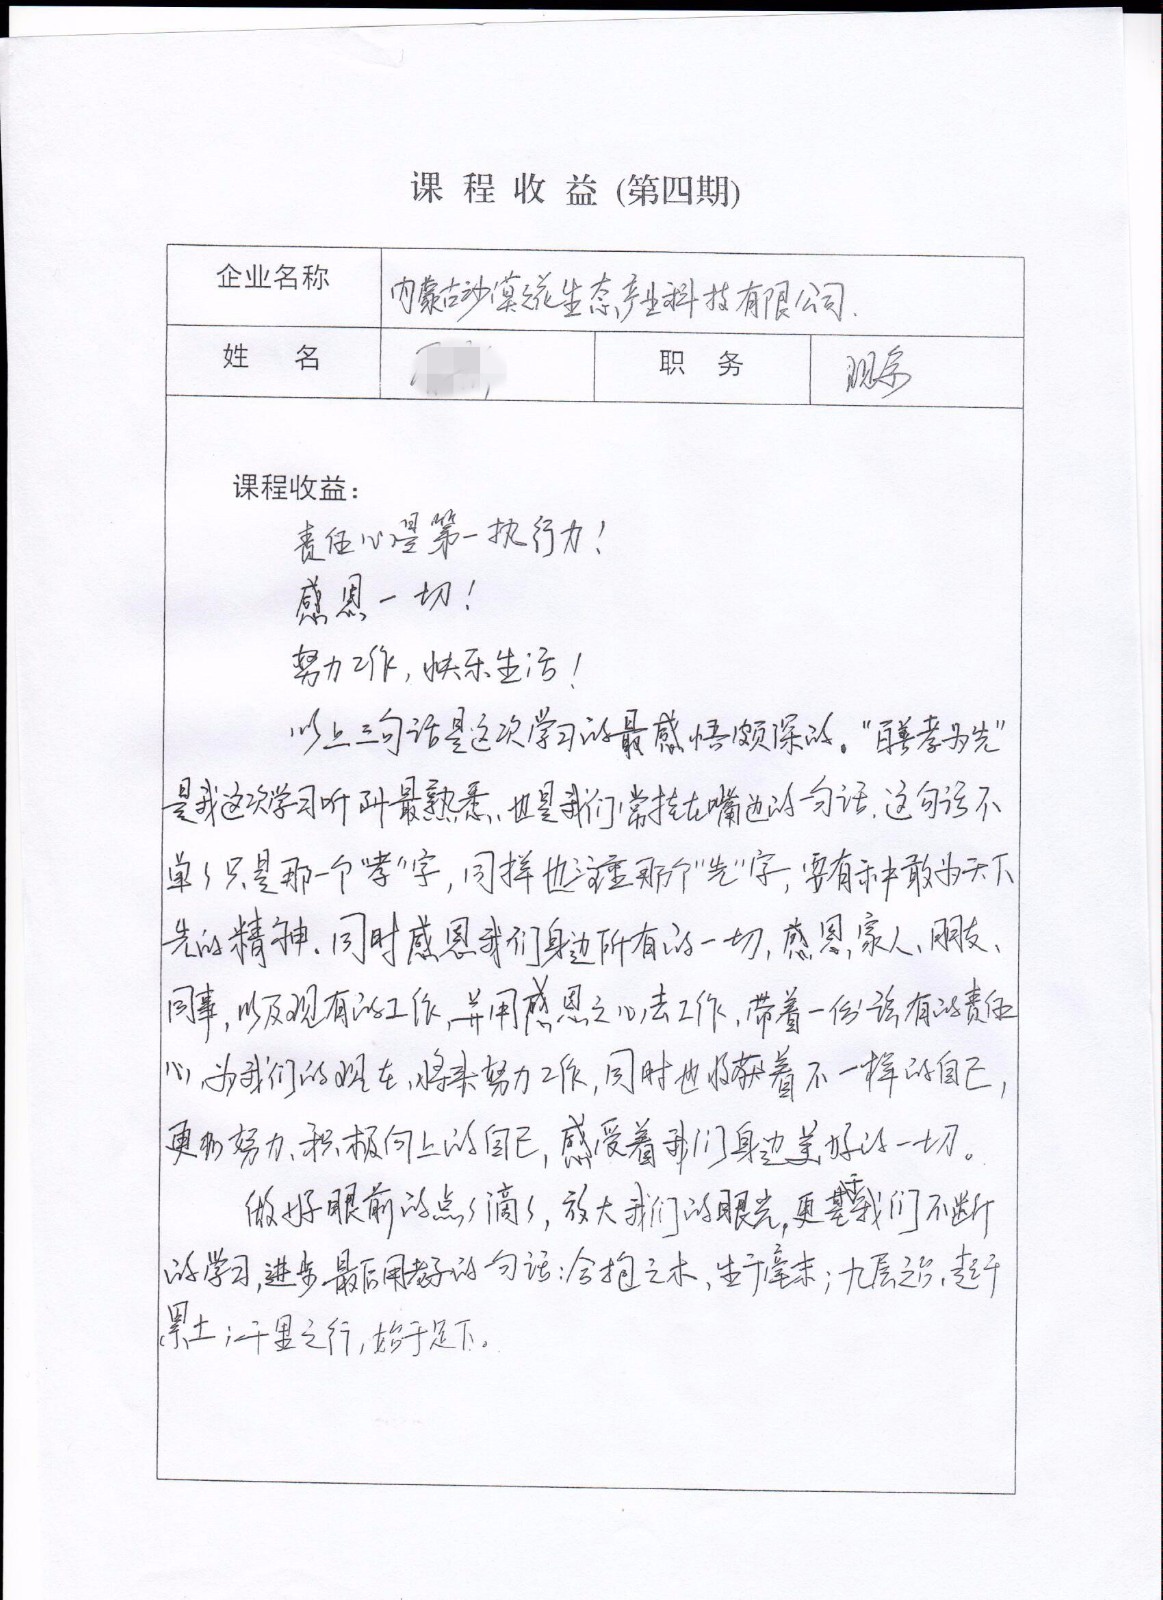 课程收益(第四期)
企业名称 内蒙古沙漠之花生态产业科技有限公司.
姓 名 职 务
课程收益：
责任心是第一执行力！
感恩一切！
努力工作，快乐生活！
以上三句话是这次学习的最感悟颇深的。“百善孝为先”
是我这次学习听到最熟悉、也是我们常挂在嘴边的句话.这句话不
单单只是那一个“孝”字，同样也注重那个“先”字，要有种敢为天下
先的精神.同时感恩我们身边所有的一切,感恩,家人、朋友、
同事，以及现有的工作,并用感恩之心去工作,带着一份该有的责任
心,为我们的现在、将来努力工作,同时也收获着不一样的自己,
更加努力、积极向上的自己,感受着我们身边美好的一切。
做好眼前的点点滴滴,放大我们的眼光,更基于我们不断
的学习,进步.最后用老子的句话:合抱之木,生于毫末;九层之台,起于
累土;千里之行,始于足下。